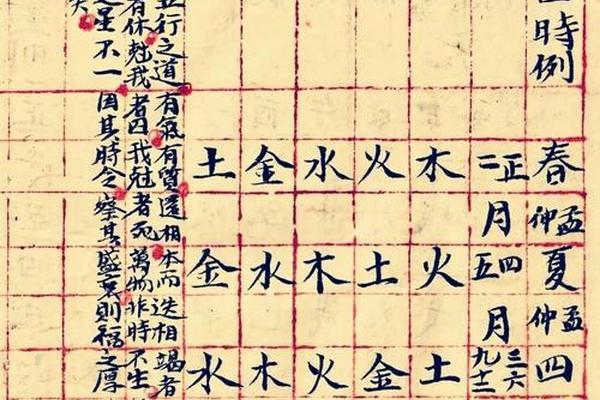 時例
春孟仲夏孟仲四
正二月四五月三六九十二
木火土
火土金
水木火
金水木
土金水
行之道有氣有質還相本而迭相竭者
有休尅我者囚我尅者死萬物非時不生
星不一因其時令察其盛衰則福之厚